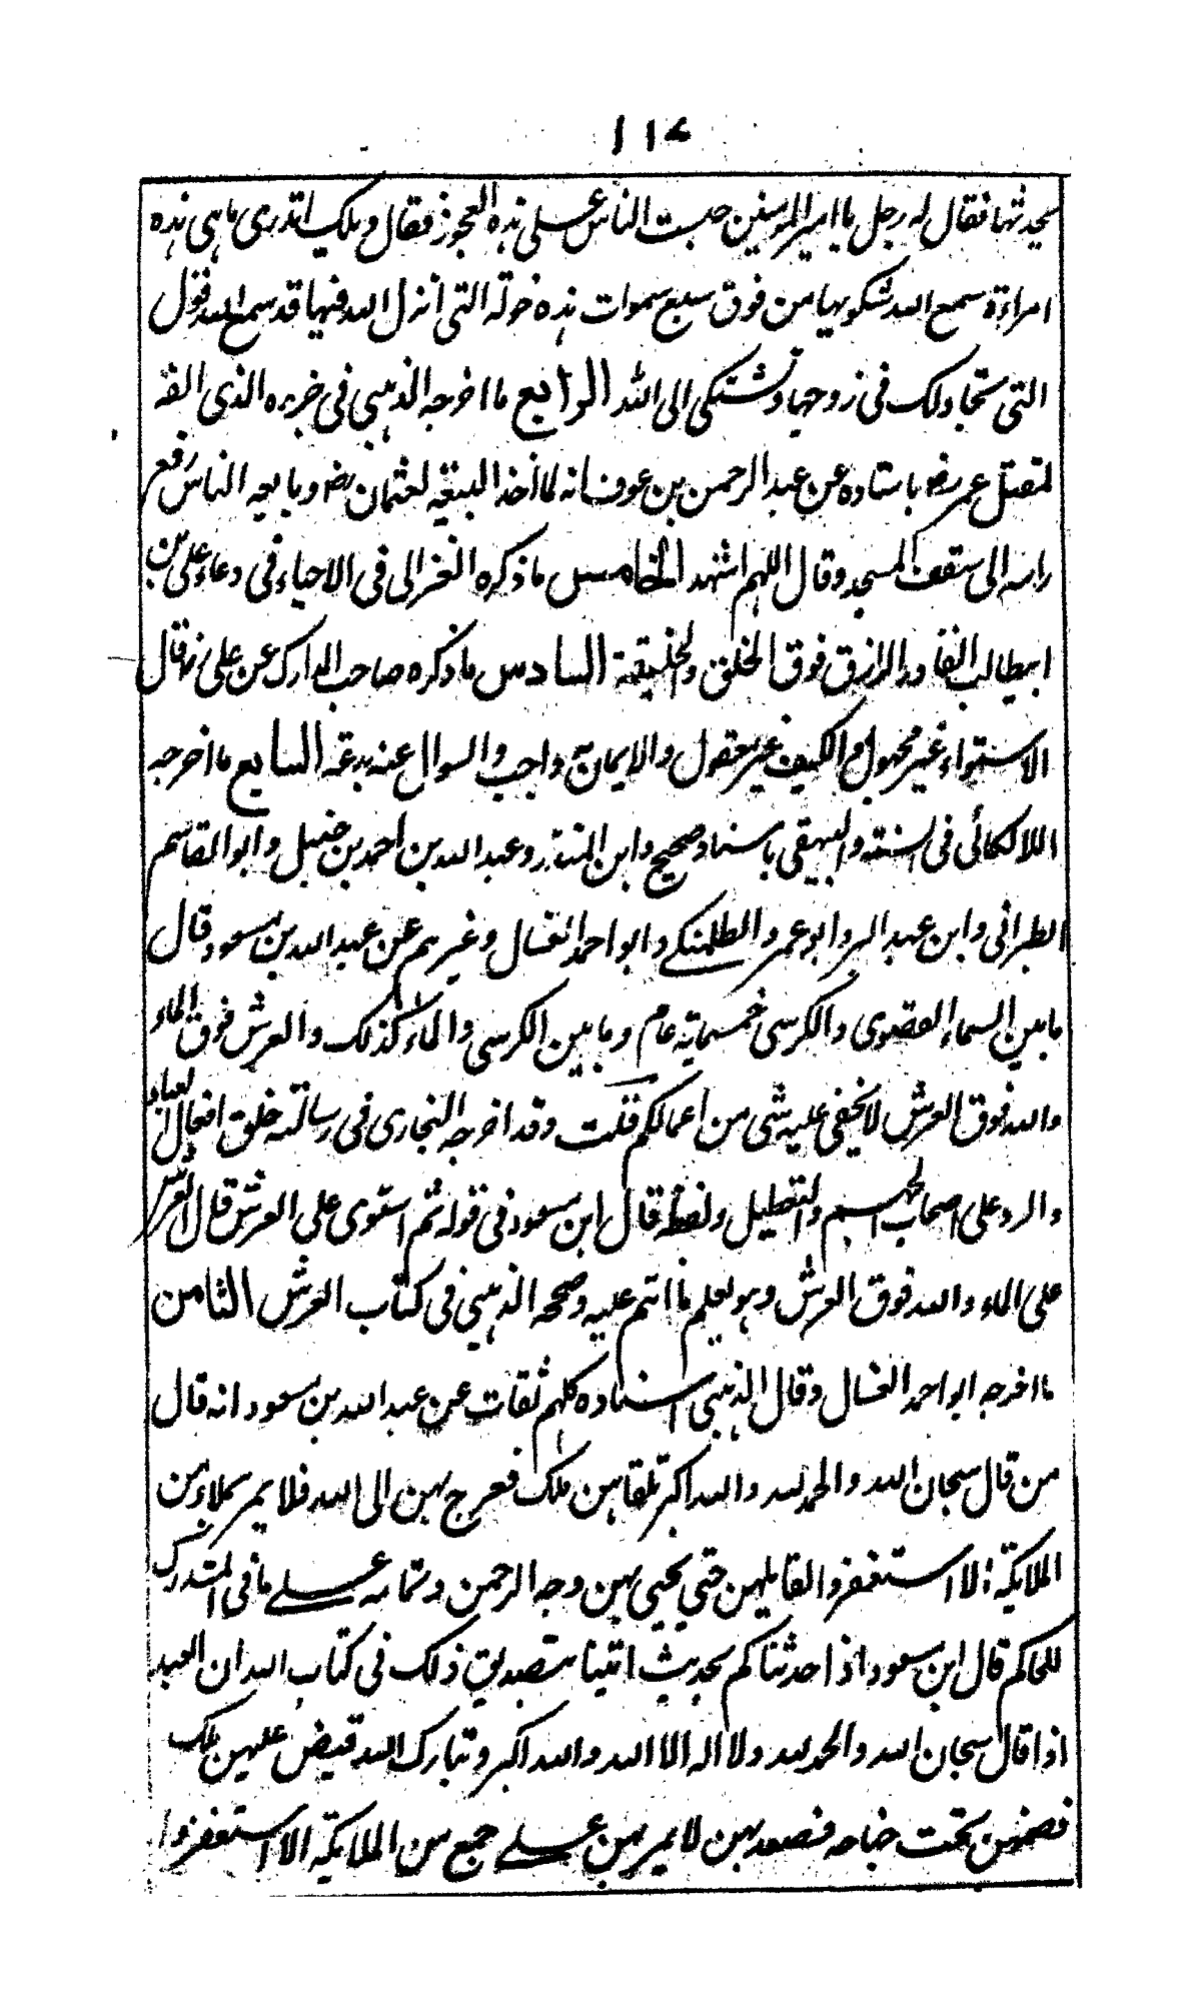 ١١٧
يحدثها فقال له رجل يا امير المومنين حبست الناس على هذه العجوز فقال ويلك اتدرى ما هى هذه
امراءة سمع الله شكويها من فوق سبع سموات هذه خولة التى انزل الله فيها قد سمع الله قول
التى تجادلك فى زوجها وتشتكى الى الله الرابع ما اخرجه الذهبى فى جزءه الذى الفه
لمقتل عمر رض باسناده عن عبد الرحمن بن عوف انه لما اخذ البيعة لعثمان رض وبايعه الناس رفع
راسه الى سقف المسجد وقال اللهم اشهد الخامس ما ذكره الغزالى فى الاحياء فى دعاء على بن
ابيطالب القادر الرازق فوق الخلق والخليقة السادس ما ذكره صاحب المدارك عن على رض قال
الاستواء غير مجهول والكيف غير معقول والايمان به واجب والسوال عنه بدعة السابع ما اخرجه
اللالكائى فى السنة والبيهقى باسناد صحيح وابن المنذر وعبد الله بن احمد بن حنبل وابو القاسم
الطبرانى وابن عبد البر وابو عمرو الطلمنكے وابو احمد العسال وغيرهم عن عبد الله بن مسعود قال
ما بين السماء القصوى والكرسى خمسماية عام وما بين الكرسى والماء كذلك والعرش فوق الماء
والله فوق العرش لا يخفى عليه شى من اعمالكم قلت وقد اخرجه البخارى فى رسالته خلق افعال العباد
والرد على اصحاب الجهم والتعطيل ولفظه قال ابن مسعود فى قوله ثم استوى على العرش قال العرش
على الماء والله فوق العرش وهو يعلم ما انتم عليه وصححه الذهبى فى كتاب العرش الثامن
ما اخرجه ابو احمد العسال وقال الذهبى اسناده كلهم ثقات عن عبد الله بن مسعود انه قال
من قال سبحان الله والحمد لله والله اكبر تلقاهن ملك فعرج بهن الى الله فلا يمر بملاء من
الملايكة الا استغفروا لقايلهن حتى يحيى بهن وجه الرحمن وتمامه علے ما فى المستدرك
للحاكم قال ابن مسعود اذا حدثناكم بحديث اتينا بتصديق ذلك فى كتاب الله ان العبد
اذا قال سبحان الله والحمد لله ولا اله الا الله والله اكبر وتبارك الله قيض عليهن ملك
فضمهن تحت جناحه فصعد بهن لا يمر بهن علے جمع من الملايكة الا استغفروا